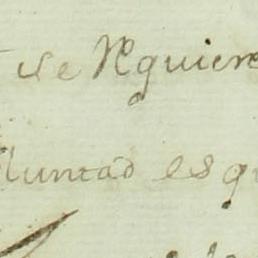 se Requiere
luntad es q